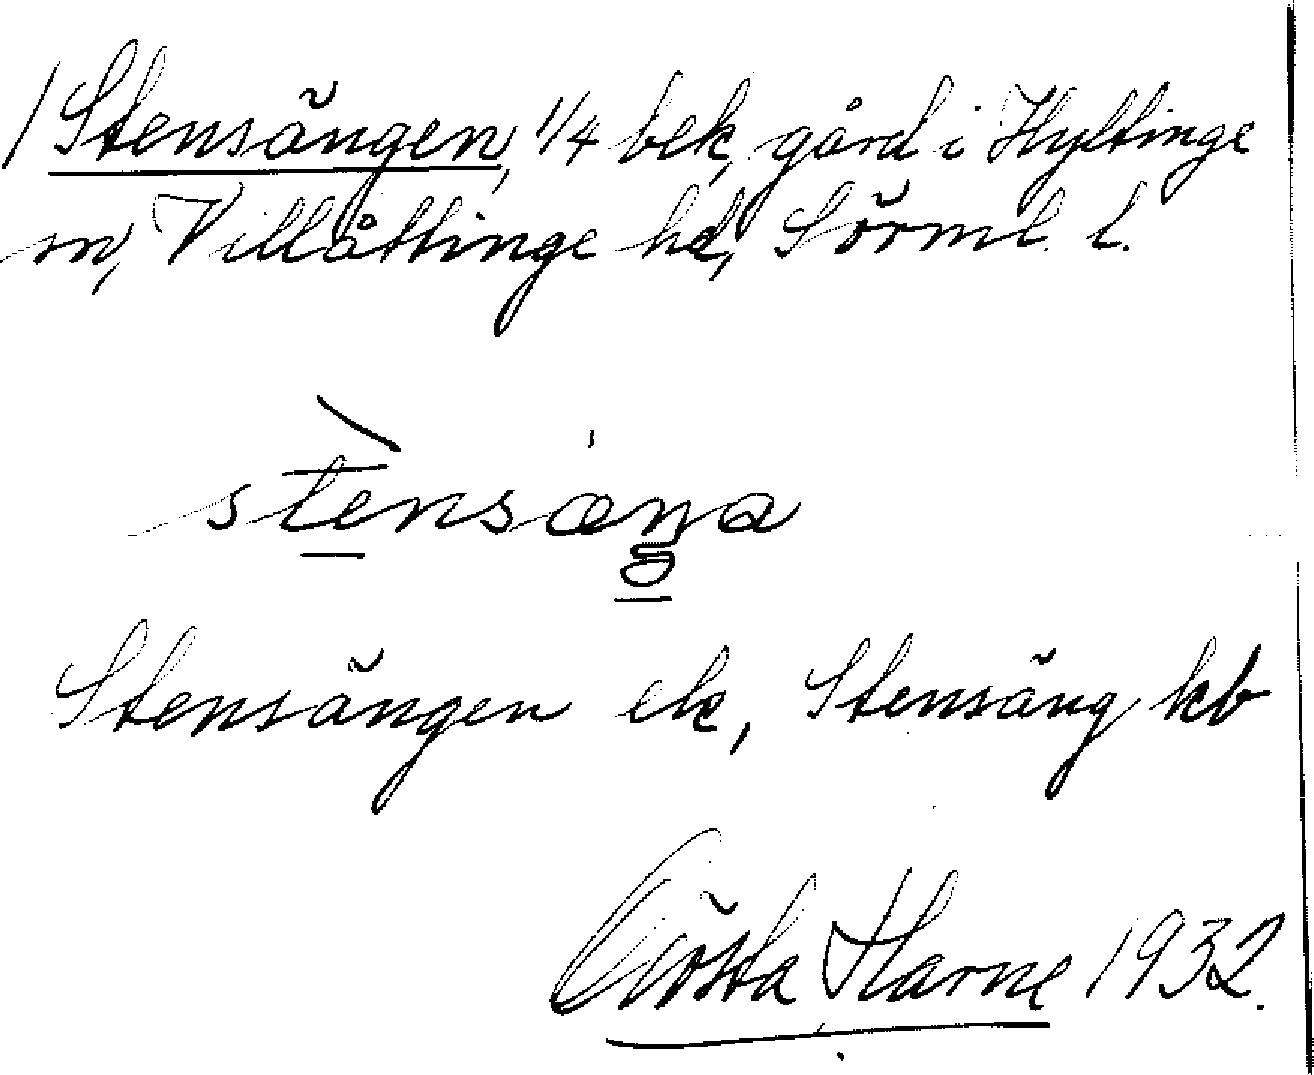 / Stensängen, 1/4 bek, gård i Hyltinge
sn, Villåttinge hd, Sörml. l.
stensæŋa
Stensängen ek, Stensäng kb
Gösta Harne 1932.